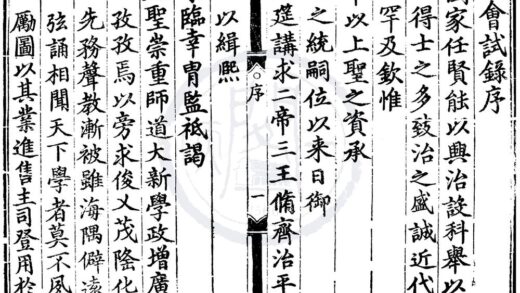 會試錄序
國家任賢能以興治設科舉以
得士之多致治之盛誠近代
罕及欽惟
以上聖之資承
之統嗣位以來日御
筵講求二帝三王脩齊治平
以緝熙
序 一
臨幸胄監祗謁
聖崇重師道大新學政增廣
孜孜焉以旁求俊乂茂隆化
先務聲教漸被雖海隅僻遠
弦誦相聞天下學者莫不夙
勵圖以其業進售主司登用於